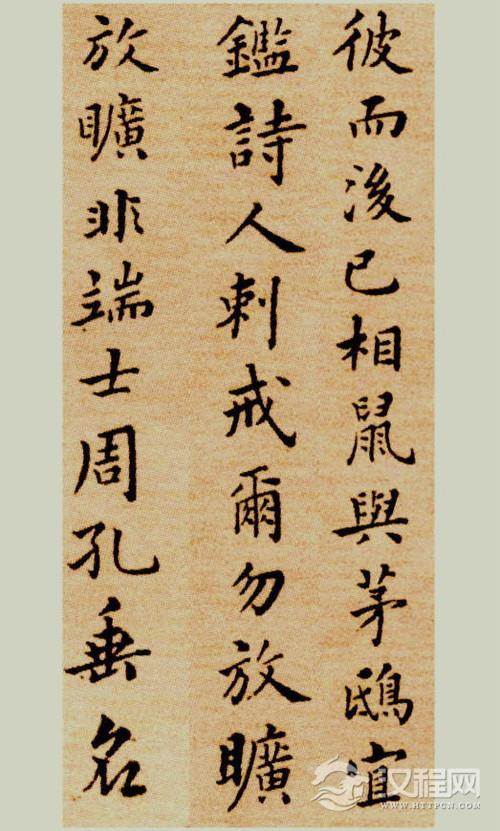 彼而後已相鼠與茅鴟宜
鑑詩人刺戒爾勿放曠
放曠非端士周孔垂名
汉程网
WWW.HTTPCN.COM